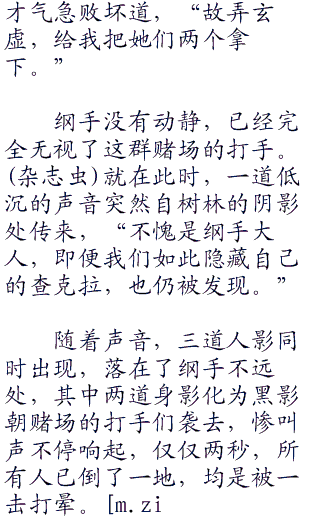 才气急败坏道，“故弄玄
虚，给我把她们两个拿
下。”
纲手没有动静，已经完
全无视了这群赌场的打手。
(杂志虫)就在此时，一道低
沉的声音突然自树林的阴影
处传来，“不愧是纲手大
人，即便我们如此隐藏自己
的查克拉，也仍被发现。”
随着声音，三道人影同
时出现，落在了纲手不远
处，其中两道身影化为黑影
朝赌场的打手们袭去，惨叫
声不停响起，仅仅两秒，所
有人已倒了一地，均是被一
击打晕。[m.zi